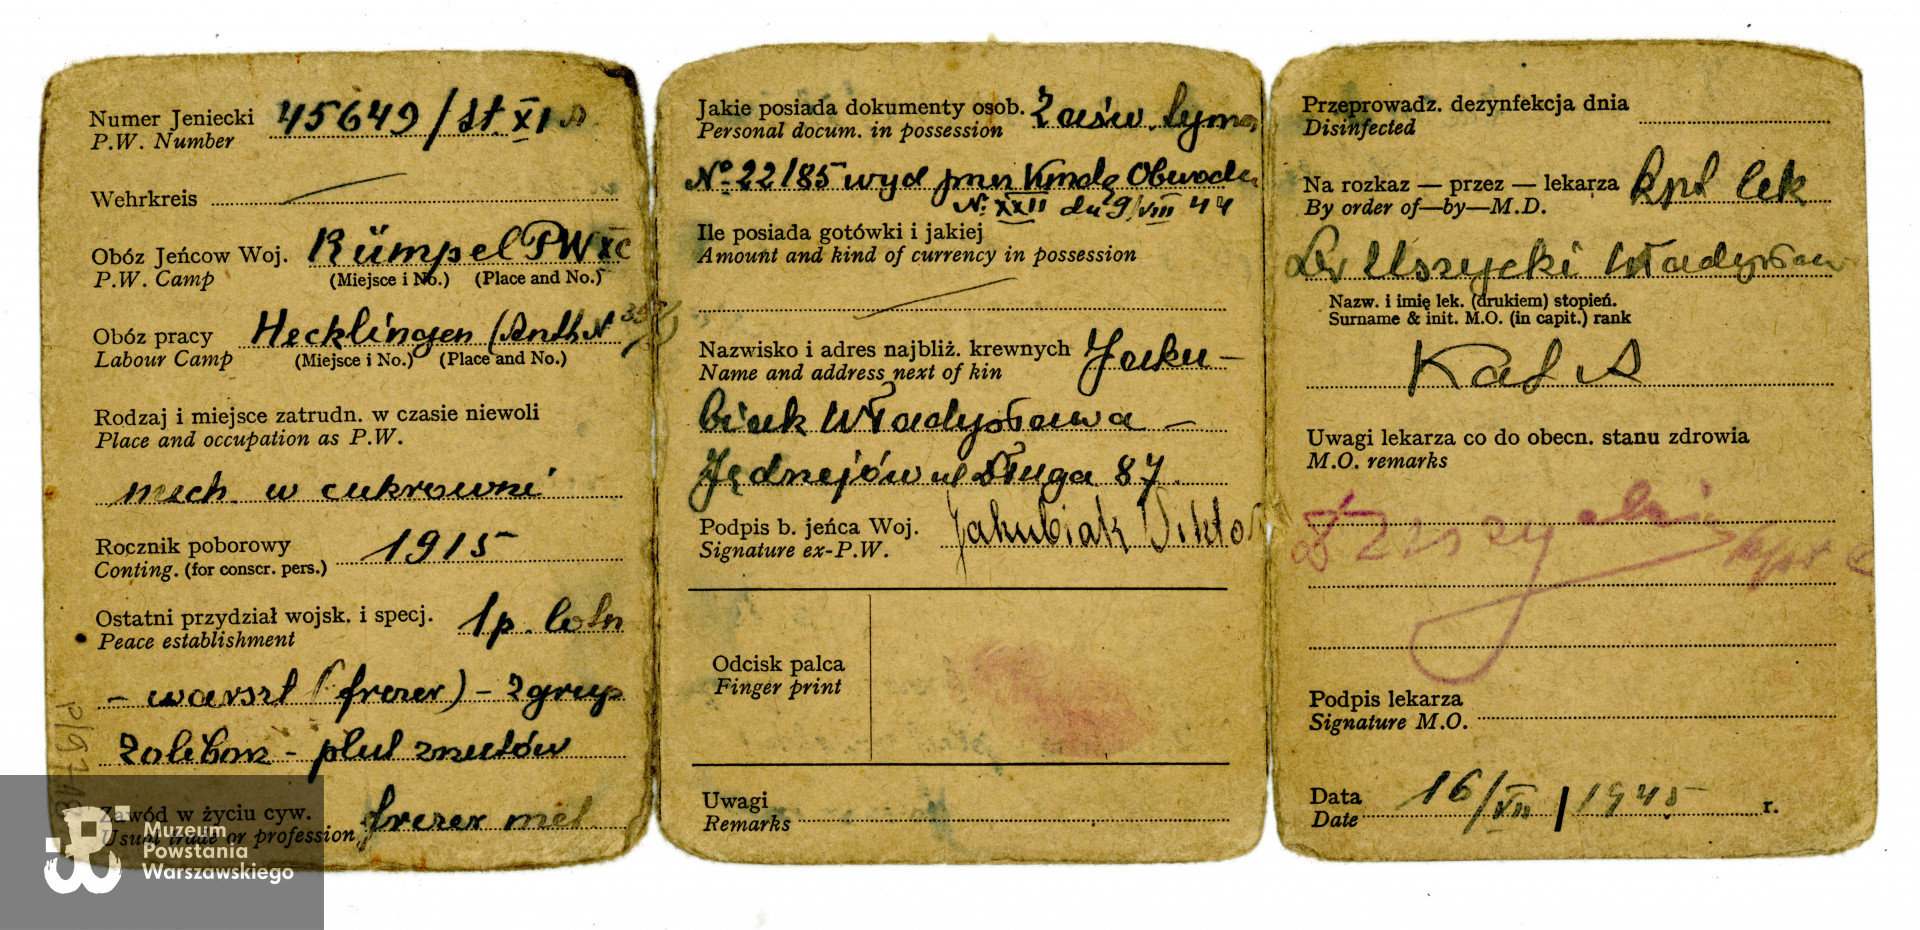 Numer Jeniecki 45649/St. XI A
P.W. Number
Wehrkreis
Obóz Jeńcow Woj. Rümpel PW XC
P.W. Camp (Miejsce i No.) (Place and No.)
Obóz pracy Hecklingen (Anh. N
Labour Camp (Miejsce i No.) (Place and No.)
Rodzaj i miejsce zatrudn. w czasie niewoli
Place and occupation as P.W.
mech. w cukrowni
Rocznik poborowy 1915
Conting. (for conscr. pers.)
Ostatni przydział wojsk. i specj. 1 p. lotn
Peace establishment
- warszt (frezer) - zgrup
Zoliborz - plut
Zawód w życiu cyw. frezer met.
Usual trade or profession
Jakie posiada dokumenty osob. Zaśw. tymcz
Personal docum. in possession
No 22/85 wyd przez Kmdę Obwodu
N: XXII dn 9/VIII 44
Ile posiada gotówki i jakiej
Amount and kind of currency in possession
Nazwisko i adres najbliż. krewnych Jaku-
Name and address next of kin
biak Władysława -
Jędrzejów ul Długa 87.
Podpis b. jeńca Woj. Jakubiak Wiktor
Signature ex-P.W.
Odcisk palca
Finger print
Uwagi
Remarks
Przeprowadz. dezynfekcja dnia
Disinfected
Na rozkaz — przez — lekarza kpt lek
By order of—by—M.D.
Dr Uszycki Władysław
Nazw. i imię lek. (drukiem) stopień.
Surname & init. M.O. (in capit.) rank
Kat A
Uwagi lekarza co do obecn. stanu zdrowia
M.O. remarks
Podpis lekarza
Signature M.O.
Data 16/VII/1945 r.
Date
Muzeum
Powstania
Warszawskiego